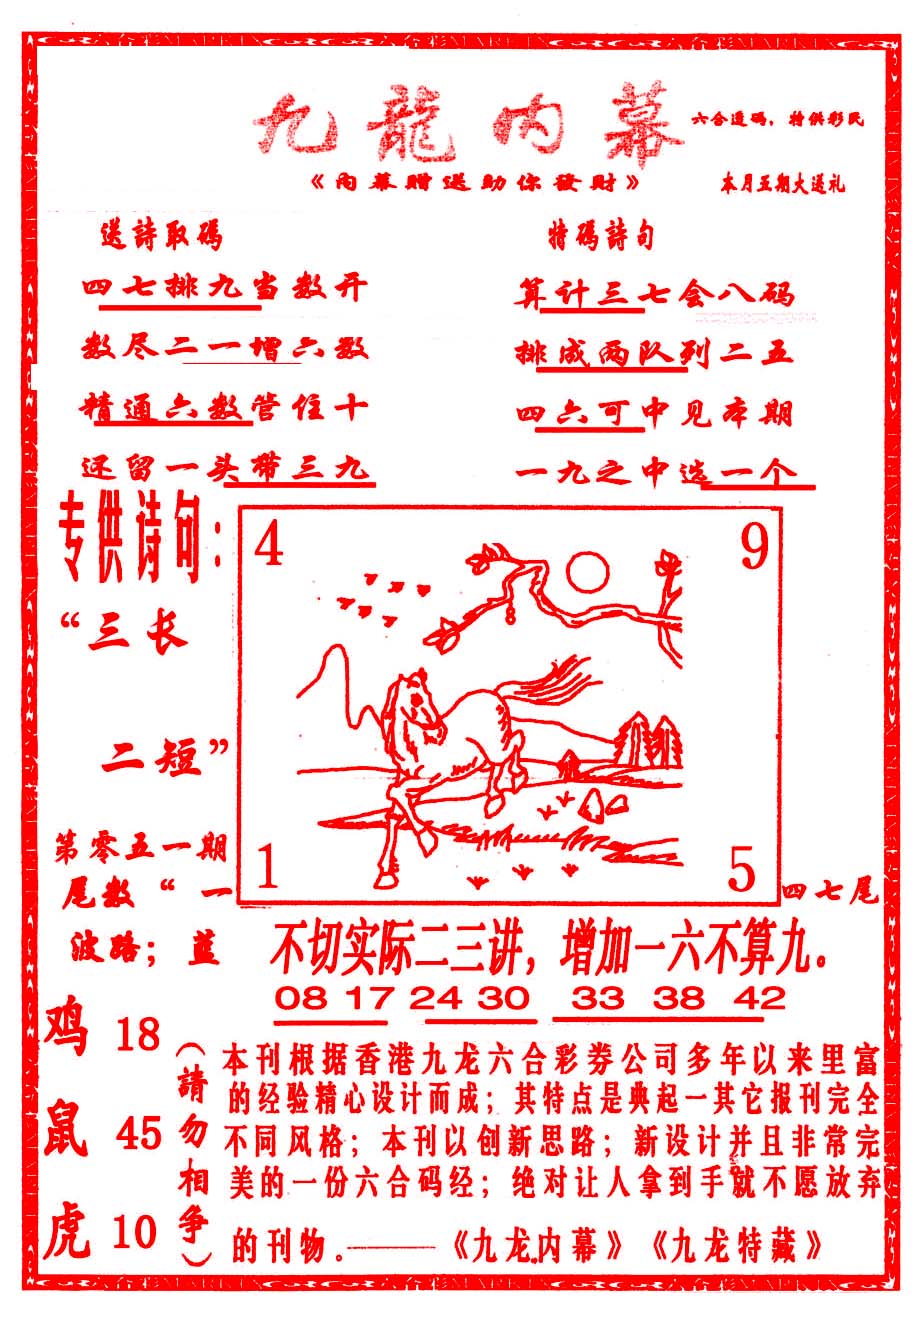 九龍内幕
六合透码，特供彩民
《内幕赠送助你發财》
本月五期大送礼
送詩取碼
四七排九当数开
数尽二一增六数
精通六数管住十
还留一头带三九
特碼詩句
算计三七会八码
排成两队列二五
四六可中见本期
一九之中选一个
专供诗句：
“三长
二短”
4
9
1
5
第零五一期
尾数“一
四七尾
波路；蓝
不切实际二三讲，增加一六不算九。
08 17 24 30 33 38 42
鸡 18
鼠 45
虎 10
（請勿相争）
本刊根据香港九龙六合彩券公司多年以来里富
的经验精心设计而成；其特点是典起一其它报刊完全
不同风格；本刊以创新思路；新设计并且非常完
美的一份六合码经；绝对让人拿到手就不愿放弃
的刊物。——《九龙内幕》《九龙特藏》